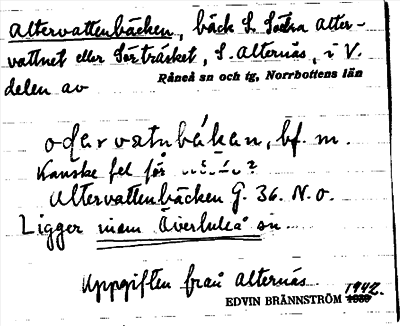 Altervattenbäcken, bäck S. Södra Alter-
vattnet eller Sörträsket, S. Alternäs, i V.
Råneå sn och tg, Norrbottens län
delen av
odarvatnbäkan, bf. m.
Kanske fel för
Altervattenbäcken G. 36. N. o.
Ligger inom Överluleå sn.
Uppgiften från Alternäs
EDVIN BRÄNNSTRÖM 1942.